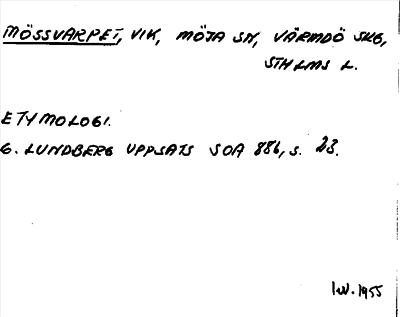 MÖSSVARPET, VIK, MÖJA SN, VÄRMDÖ SKG,
STHLMS L.
ETYMOLOGI.
G. LUNDBERG UPPSATS SOA 886, S. 23.
IW. 1955